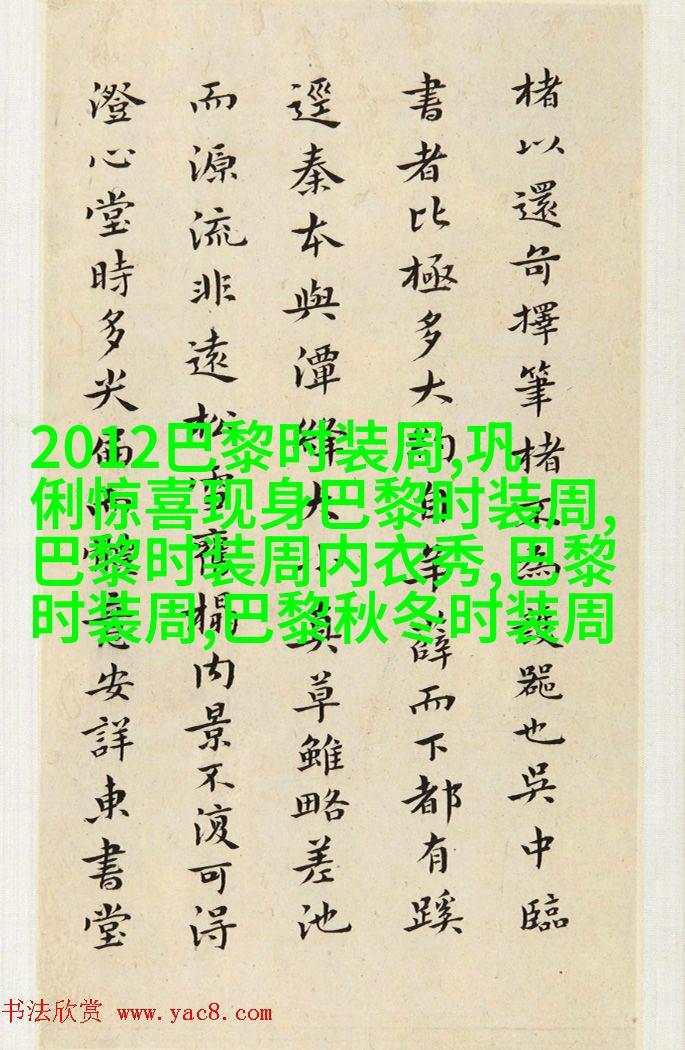 楮以還奇擇筆楮不為設器也吳中臨
書者比極多大約自羊薛而下都有蹊
逕秦本與潭絳大小真草雖略差池
而源流非遠松雪舊榻內景不復可得
澄心堂時多尖偏安詳東書堂
2012巴黎时装周,巩
俐惊喜现身巴黎时装周,
巴黎时装周内衣秀,巴黎
时装周,巴黎秋冬时装周
书法欣赏 www.yac8.com